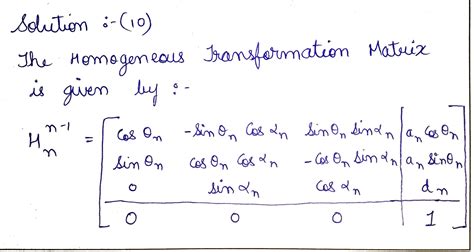 Solution :-(10)
The Homogeneous Transformation Matrix
is given by :-
H_n^{n-1} = [ Cos θ_n  -Sin θ_n Cos α_n  Sin θ_n Sin α_n | a_n Cos θ_n
Sin θ_n  Cos θ_n Cos α_n  -Cos θ_n Sin α_n | a_n Sin θ_n
0  Sin α_n  Cos α_n | d_n
0  0  0 | 1 ]